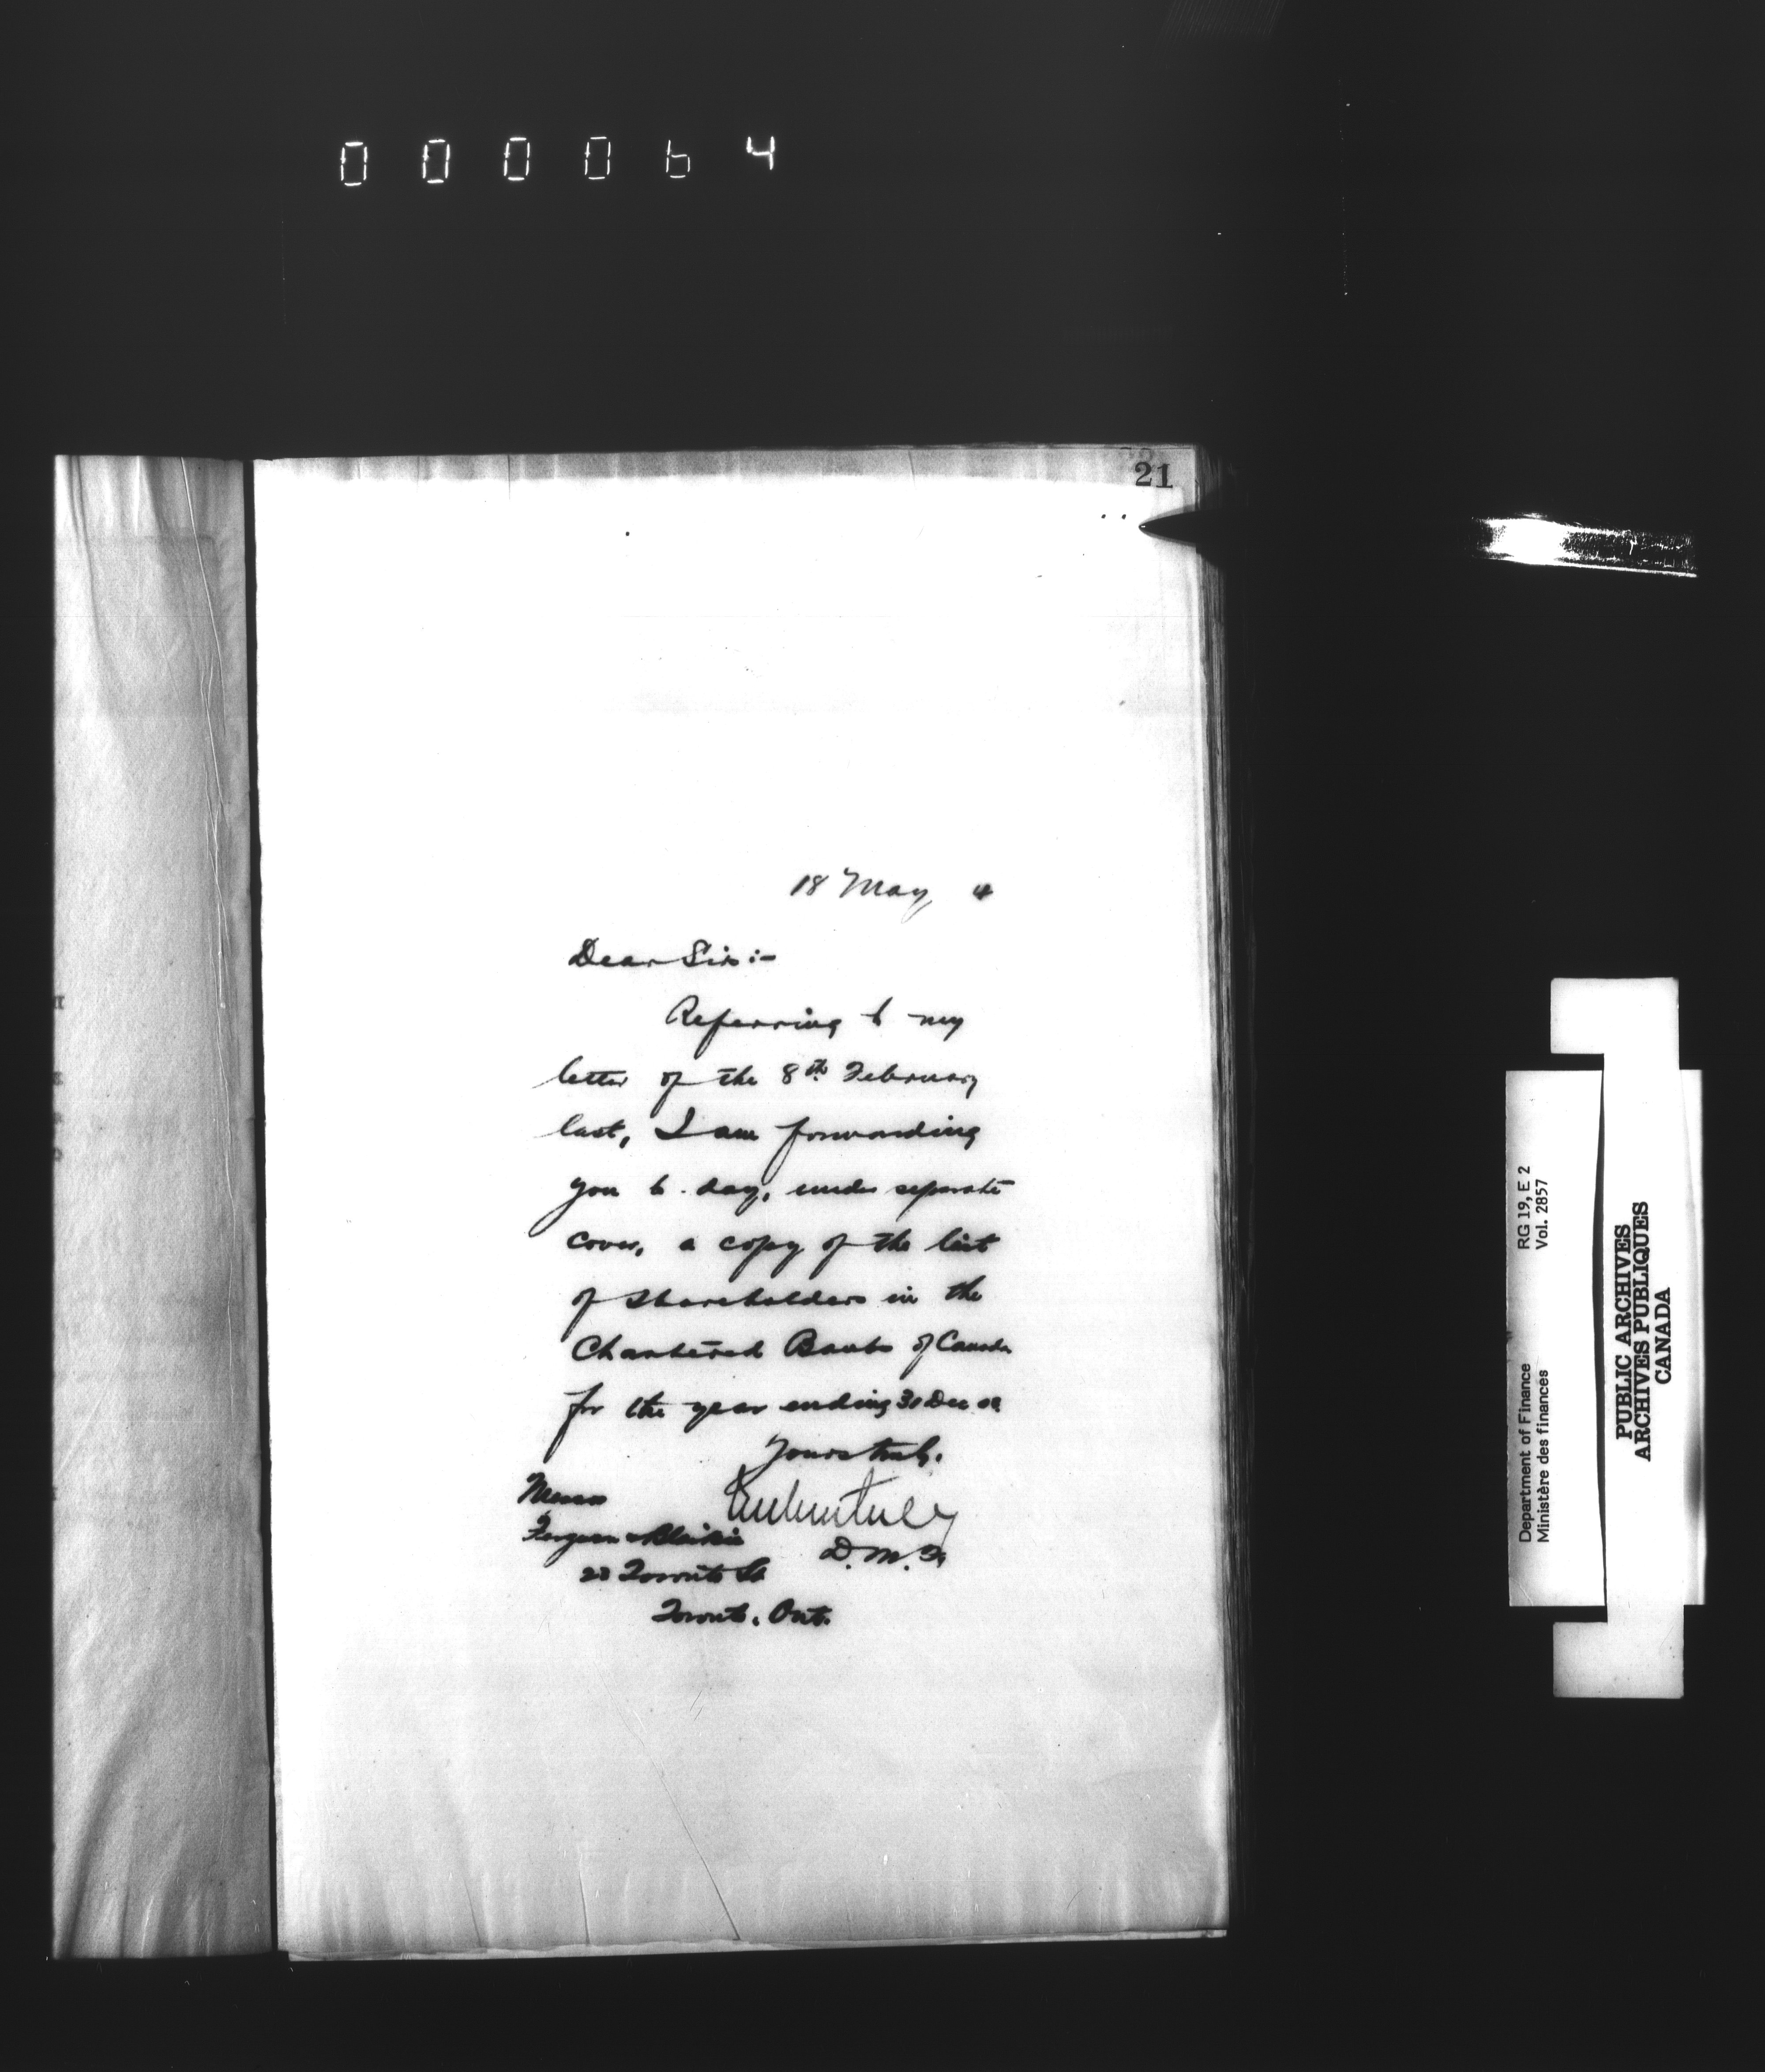 000064
21
18 May, 4
Dear Sir :-
Referring to my
letter of the 8th February
last, I am forwarding
you to-day, under separate
cover, a copy of the list
of Shareholders in the
Chartered Banks of Canada
for the year ending 31 Dec 03
Yours truly,
Messrs
D. M. F.
Ferguson & Blaikie
23 Toronto St
Toronto, Ont.
RG 19, E 2
Vol. 2857
Department of Finance
Ministère des finances
PUBLIC ARCHIVES
ARCHIVES PUBLIQUES
CANADA